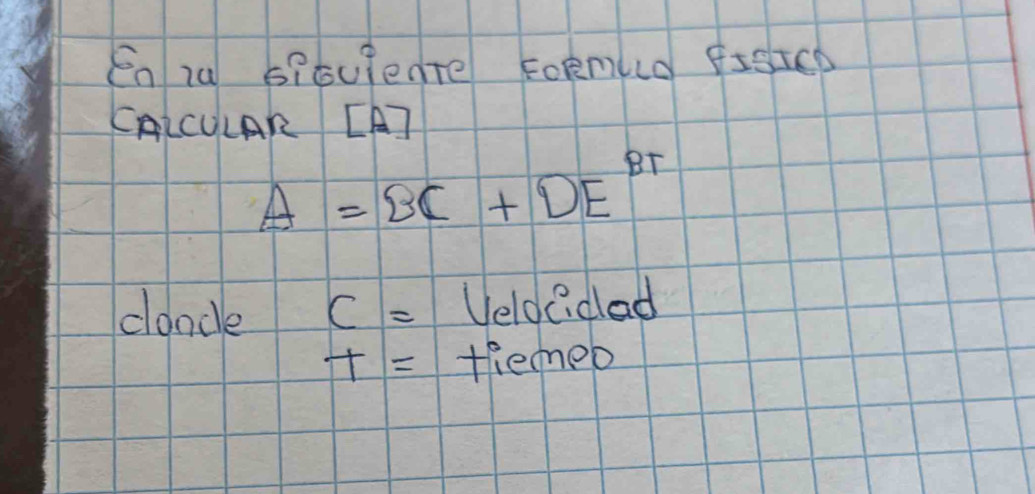 En la siguiente FORMULA FISICA
CALCULAR [A]
A = BC + DE^BT
donde C = Velocidad
T = tiempo